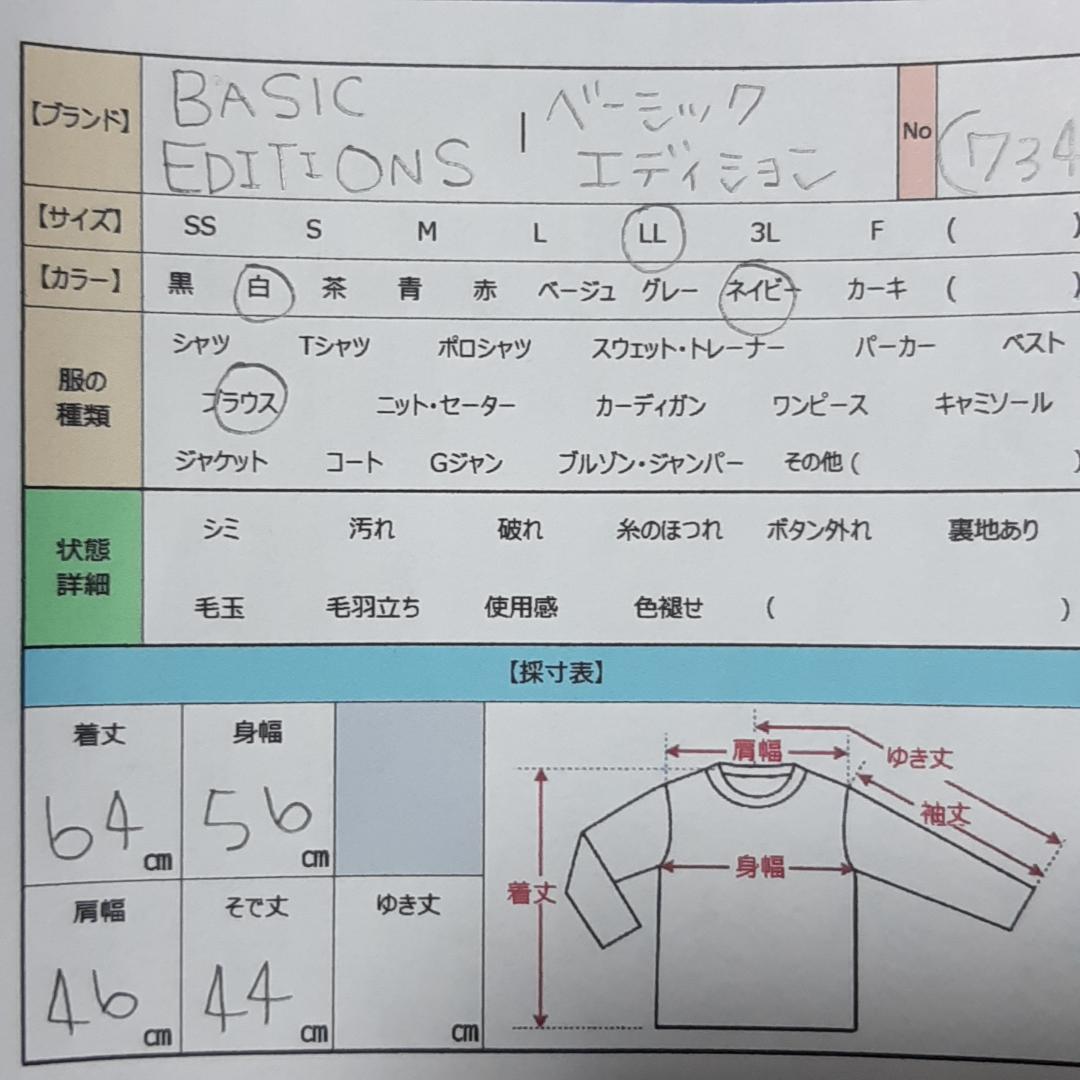 【ブランド】 BASIC EDITIONS | ベーシック エディション No (734
【サイズ】 SS S M L LL 3L F ( )
【カラー】 黒 白 茶 青 赤 ベージュ グレー ネイビー カーキ ( )
服の種類
シャツ Tシャツ ポロシャツ スウェット・トレーナー パーカー ベスト
ブラウス ニット・セーター カーディガン ワンピース キャミソール
ジャケット コート Gジャン ブルゾン・ジャンパー その他 ( )
状態詳細
シミ 汚れ 破れ 糸のほつれ ボタン外れ 裏地あり
毛玉 毛羽立ち 使用感 色褪せ ( )
【採寸表】
着丈 身幅
64 cm 56 cm
肩幅 そで丈 ゆき丈
46 cm 44 cm cm
肩幅 ゆき丈
袖丈
身幅
着丈